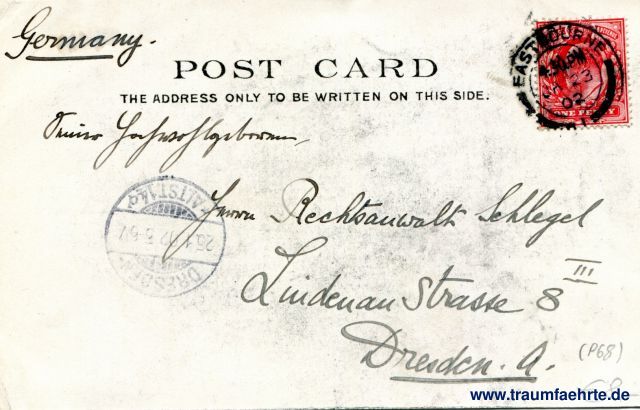 Germany.
POST CARD
THE ADDRESS ONLY TO BE WRITTEN ON THIS SIDE.
EASTBOURNE
PM
02
ONE PENNY
Seiner Hochwohlgeboren,
Herrn Rechtsanwalt Schlegel
Lindenau Strasse 8 III
Dresden. A.
DRESDEN
ALTST.
(P68)
www.traumfaehrte.de